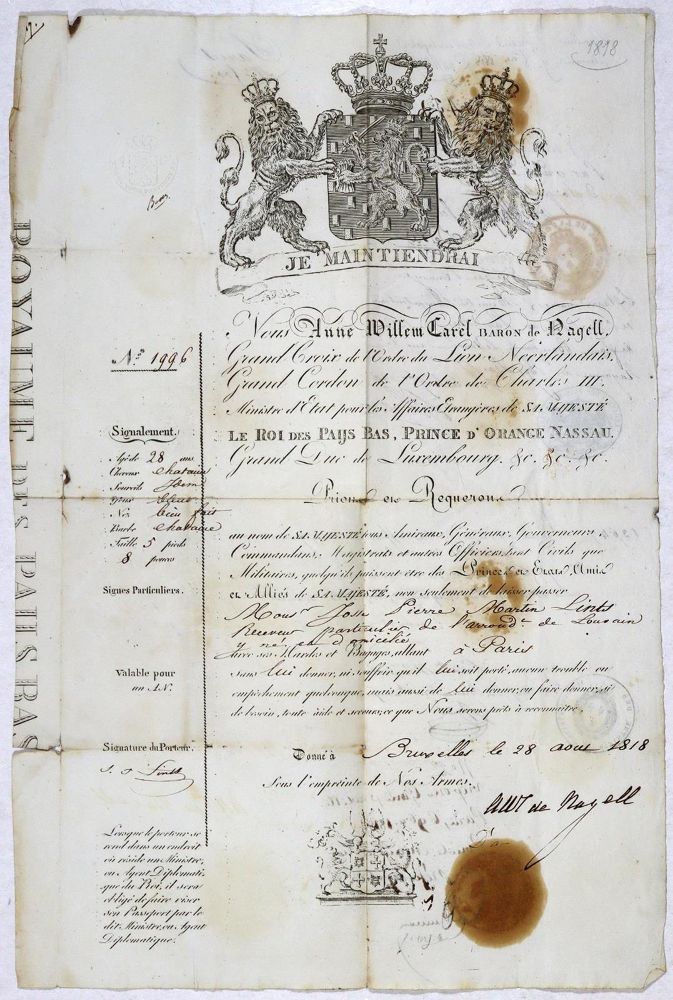 1818
JE MAINTIENDRAI
ROYAUME DES PAIJS BAS
Nous Anne Willem Carel BARON de Nagell,
Grand Croix de l'Ordre du Lion Neerlandais,
Grand Cordon de l'Ordre de Charles III.
Ministre d'Etat pour les Affaires Etrangères de SA MAJESTÉ
LE ROI DES PAIJS BAS, PRINCE D'ORANGE NASSAU.
Grand Duc de Luxembourg, &c. &c. &c.
Prions et Requerons
au nom de SA MAJESTÉ tous Amiraux, Généraux, Gouverneurs
Commandans, Magistrats et autres Officiers tant Civils que
Militaires, quelqu'ils puissent etre des Princes et Etats, Amis
et Alliés de SA MAJESTÉ, non seulement de laisser passer
Mons.r Josse Pierre Martin Lints
Receveur particulier de l'arrond.t de Louvain
y né et domicilié
avec ses Hardes et Bagages, allant à Paris
sans lui donner, ni souffrir qu'il lui soit porté, aucun trouble ou
empêchement quelconque, mais aussi de lui donner, ou faire donner, si
de besoin, toute aide et secours; ce que Nous serons prêts à reconnaître.
Donné à Bruxelles le 28 aout 1818
Sous l'empreinte de Nos Armes.
AWC de Nagell
N.o 1996
Signalement.
Agé de 28 ans
Cheveux chatains
Sourcils Idem
Yeux bleus
Nez bien fait
Barbe chataine
Taille 5 pieds
8 pouces
Signes Particuliers.
Valable pour
un AN.
Signature du Porteur.
J. P. Lints
Lorsque le porteur se
rend dans un endroit
où réside un Ministre,
ou Agent Diplomati-
que du Roi, il sera
obligé de faire viser
son Passeport par le
dit Ministre, ou Agent
Diplomatique.